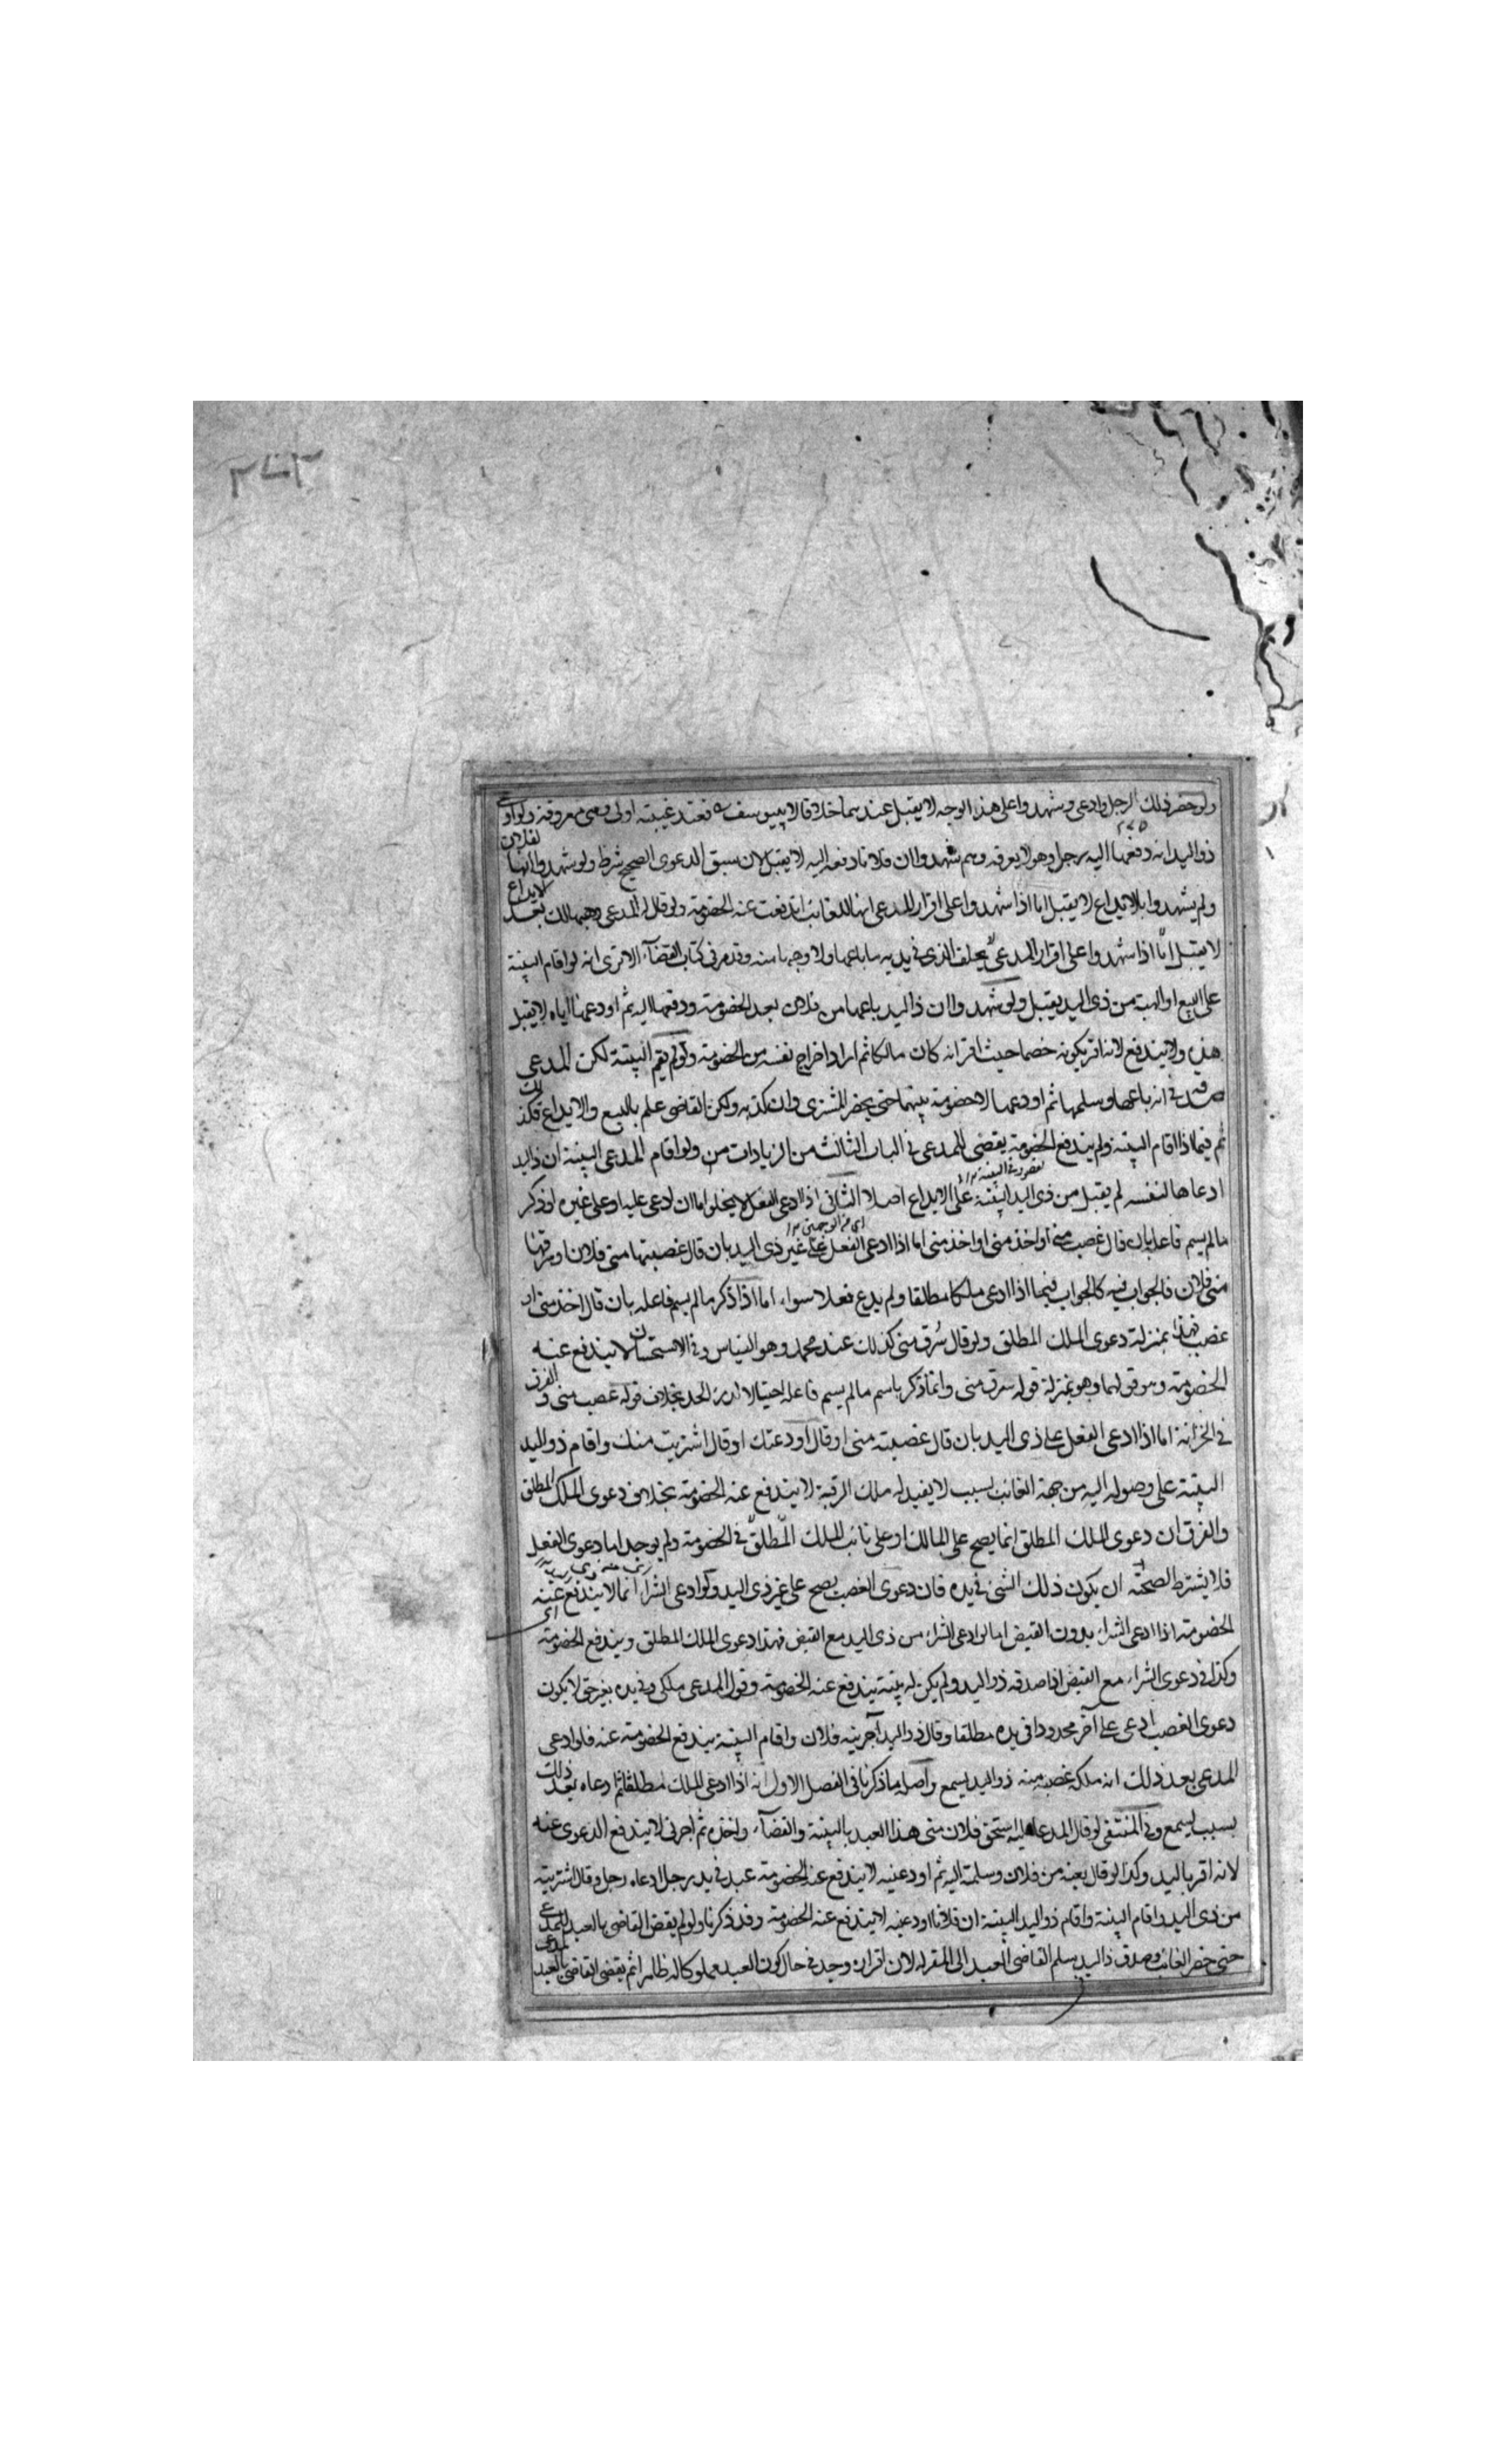 ولو حضر ذلك الرجل وادعى وشهدوا على هذا الوجه لا يقبل عندهما خلافا لابي يوسف فعند غيبته اولى وهى معروفة ولو ادعى
ذو اليد انه دفعها اليه رجل وهو لا يعرفه وهم شهدوا ان فلانا دفعه اليه لا يقبل لان سبق الدعوى الصحيح شرط ولو شهدوا انها لفلان
ولم يشهدوا بالايداع لا يقبل اما اذا شهدوا على اقرار المدعى انها للغائب اندفعت عنه الخصومة ولو قال المدعى وهبها لك بعد الايداع
لا يقبل اما اذا شهدوا على اقرار المدعى يحلف الذى فى يديه ما باعها ولا وهبها منه وقد مر فى كتاب القضاء الا ترى انه لو اقام البينة
على البيع او الهبة من ذى اليد يقبل ولو شهدوا ان ذا اليد باعها من فلان بعد الخصومة ودفعها اليه ثم اودعها اياه لا يقبل
هذه ولا يندفع لانه اقر بكونه خصما حيث اقر انه كان مالكا ثم اراد اخراج نفسه من الخصومة ولو لم يقم البينة لكن المدعى
صدقه فى انه باعها وسلمها ثم اودعها لا خصومة بينهما حتى يحضر المشترى وان كذبه ولكن القاضى علم بالبيع والايداع فكذلك
ثم فيما اذا اقام البينة ولم يندفع الخصومة يقضى للمدعى فى الباب الثالث من الزيادات من ولو اقام المدعى البينة ان ذا اليد
ادعاها لنفسه لم يقبل من ذى اليد البينة على الايداع اصلا الثانى اذا ادعى الفعل لا يخلو اما ان ادعى عليه او على غيره او ذكر
ما لم يسم فاعله بان قال غصب منى او اخذ منى اما اذا ادعى الفعل على غير ذى اليد بان قال غصبها منى فلان او سرقها
منى فلان فالجواب فيه كالجواب فيما اذا ادعى ملكا مطلقا ولم يدع فعلا سواء اما اذا ذكر ما لم يسم فاعله بان قال اخذ منى او
غصب فهذا بمنزلة دعوى الملك المطلق ولو قال سرق منى كذلك عند محمد وهو القياس وفى الاستحسان لا يندفع عنه
الخصومة وهو قولهما وهو بمنزلة قوله سرق منى وانما ذكر باسم ما لم يسم فاعله احتيالا لدرء الحد بخلاف قوله غصب منى والفرق
فى الخزانة اما اذا ادعى الفعل على ذى اليد بان قال غصبته منى او قال اودعتك او قال اشتريت منك واقام ذو اليد
البينة على وصوله اليه من جهة الغائب بسبب لا يفيد له ملك الرقبة لا يندفع عنه الخصومة بخلاف دعوى الملك المطلق
والفرق ان دعوى الملك المطلق انما يصح على المالك او على نائب الملك المطلق فى الخصومة ولم يوجد اما دعوى الفعل
فلا يشترط لصحته ان يكون ذلك الشئ فى يده فان دعوى الغصب يصح على غير ذى اليد ولو ادعى الشراء انما لا يندفع عنه
الخصومة اذا ادعى الشراء بدون القبض اما لو ادعى الشراء من ذى اليد مع القبض فهذا دعوى الملك المطلق ويندفع الخصومة
وكذا فى دعوى الشراء مع القبض اذا صدقه ذو اليد ولم يكن له بينة يندفع عنه الخصومة وقول المدعى ملكى وفى يده بغير حق لا يكون
دعوى الغصب ادعى على آخر محدودا فى يده مطلقا وقال ذو اليد آجرنيه فلان واقام البينة يندفع الخصومة عنه فلو ادعى
المدعى بعد ذلك انه ملكه غصبه منه ذو اليد يسمع واصله ما ذكرنا فى الفصل الاول انه اذا ادعى الملك مطلقا ثم ادعاه بعد ذلك
بسبب يسمع وفى المنتقى لو قال المدعا عليه استحق فلان منى هذا العبد بالبينة والقضاء واخذه ثم آجرنى لا يندفع الدعوى عنه
لانه اقر باليد وكذا لو قال بعته من فلان وسلمته اليه ثم اودعنيه لا يندفع عنه الخصومة عبد فى يد رجل ادعاه رجل وقال اشتريته
من ذى اليد واقام البينة واقام ذو اليد البينة ان فلانا اودعنيه لا يندفع عنه الخصومة وقد ذكرنا ولو لم يقض القاضى بالعبد للمدعى
حتى حضر الغائب وصدق ذا اليد يسلم القاضى العبد الى المقر له لان اقراره وجد فى حال كون العبد مملوكا له ظاهرا ثم يقضى القاضى بالعبد للمدعى